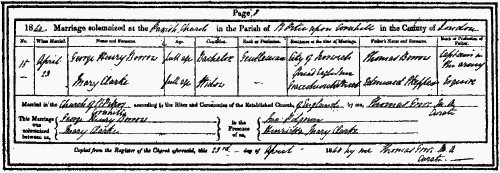 Page 8
1840. Marriage solemnized at the Parish Church in the Parish of St Peter upon Cornhill in the County of London
When Married. Name and Surname. Age Condition. Rank or Profession. Residence at the Time of Marriage. Father's Name and Surname. Rank or Profession of Father.
15 April 23 George Henry Borrow full age Bachelor Gentleman City of Norwich Thomas Borrow Captain in the Army
Mary Clarke full age Widow — Edmund Skepper Esquire
Married in the Church of St Peter Cornhill according to the Rites and Ceremonies of the Established Church, of England by me, Thomas M. A. Curate
This Marriage was solemnized between us, George Henry Borrow Mary Clarke In the Presence of us, Jno Pilgrim Henrietta Mary Clarke
Copied from the Register of the Church aforesaid, this 23rd day of April 1840 by me Thomas M. A. Curate